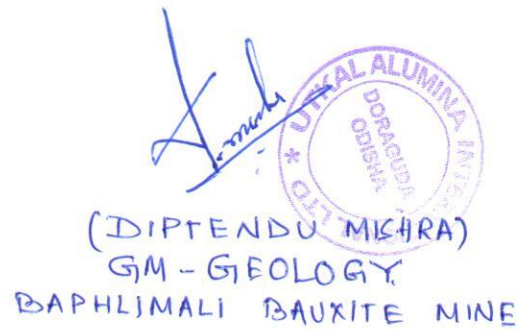 UTKAL ALUMINA INTERNATIONAL LTD *
DORAGUDA
ODISHA
(DIPTENDU MISHRA)
GM - GEOLOGY.
BAPHLIMALI BAUXITE MINE